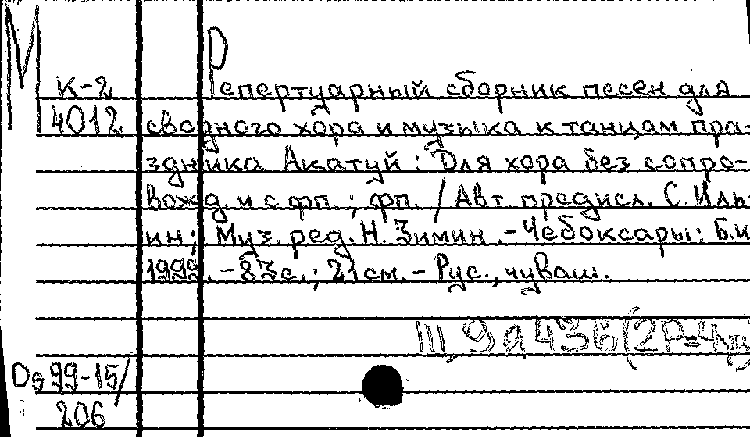 М
К-2 Репертуарный сборник песен для
4012 сводного хора и музыка к танцам пра-
здника Акатуй: Для хора без сопро-
вожд. и с фп.; фп. / Авт. предисл. С. Иль-
ин; Муз. ред. Н. Зимин. - Чебоксары: Б.и.
1999. - 83с.; 21см. - Рус., чуваш.
III 9а436(2Р=Чу)
Об 99-15/
206